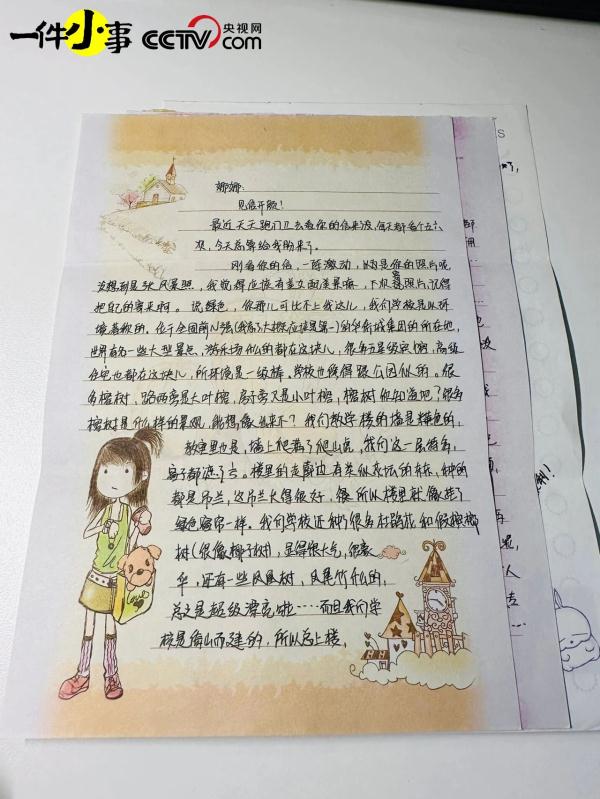 一件小事 CCTV.com 央视网
娜娜：
见信开颜！
最近天天跑门卫去看你的信来没，每天都看个五六
次，今天总算给我盼来了。
刚看你的信，一阵激动，以为是你的照片呢
没想到是张风景照，我觉得应该有美女配美景嘛，下次寄照片，记得
把自己的寄来啊。说绿色，你那儿可比不上我这儿，我们学校是以环
境著称的。位于全国前N强(我忘了大概应该是第一)的华侨城集团的所在地，
世界有名一些大型景点、游乐场什么的都在这块儿，很多五星级宾馆，高级
住宅也都在这块儿，所环境是一级棒。学校也绿得跟公园似的。很
多榕树，路两旁是大叶榕，房子旁又是小叶榕，榕树你知道吧？很多
榕树是什么样的景观，能想像出来不？我们教学楼的墙是橙色的，
教室里也是，墙上爬满了爬山虎，我们这一层特多，
窗子都遮了 。楼里的走廊边有类似花坛的存在，种的
都是吊兰，这吊兰长得很好，所以楼里就像挂了
绿色窗帘一样。我们学校还种了很多杜鹃花和假槟榔
树(很像椰子树)，显得很大气，很豪
华，还有一些凤凰树，凤尾竹什么的，
总之是超级漂亮啦……而且我们学
校是傍山而建的，所以总上楼，